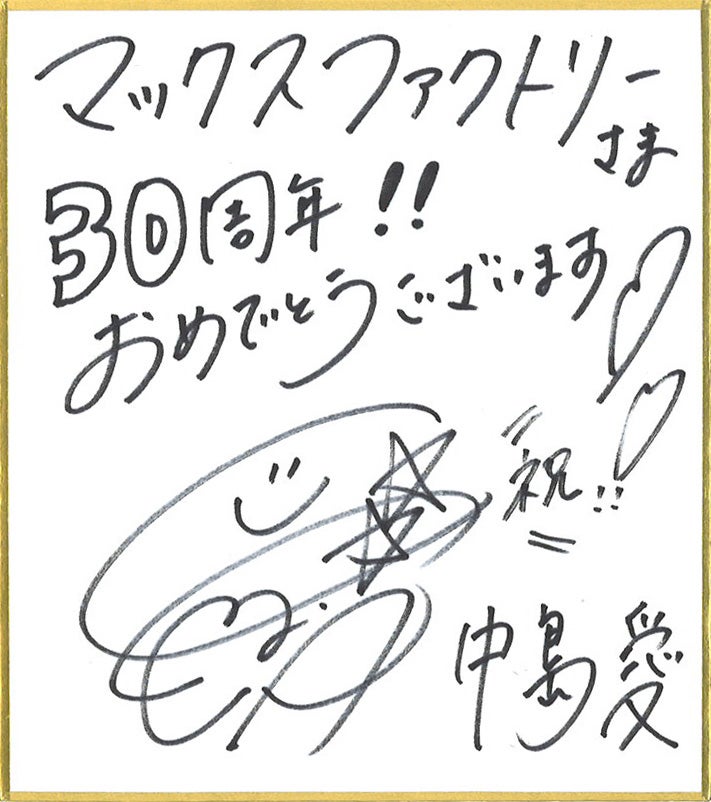 マックスファクトリー
さま
30周年!!
おめでとうございます
祝!!
中島愛